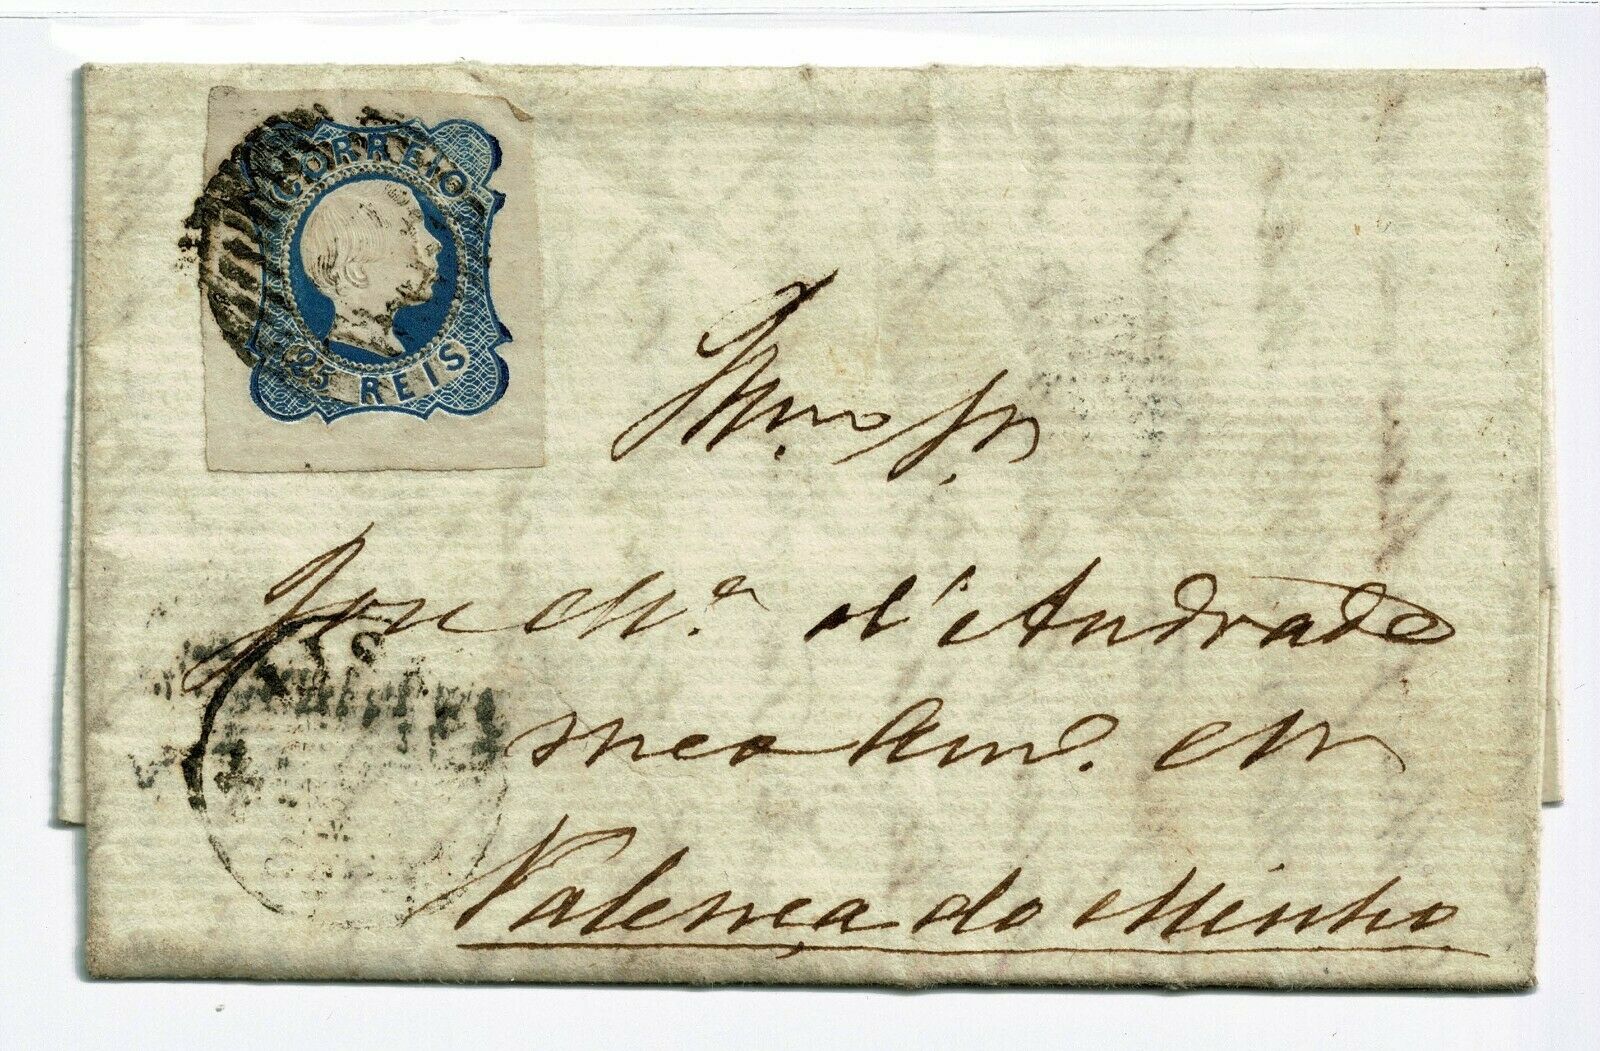 CORREIO
25 REIS
Illmo Sr.
José Ma. d'Andrade
meo Amo. em
Valença do Minho